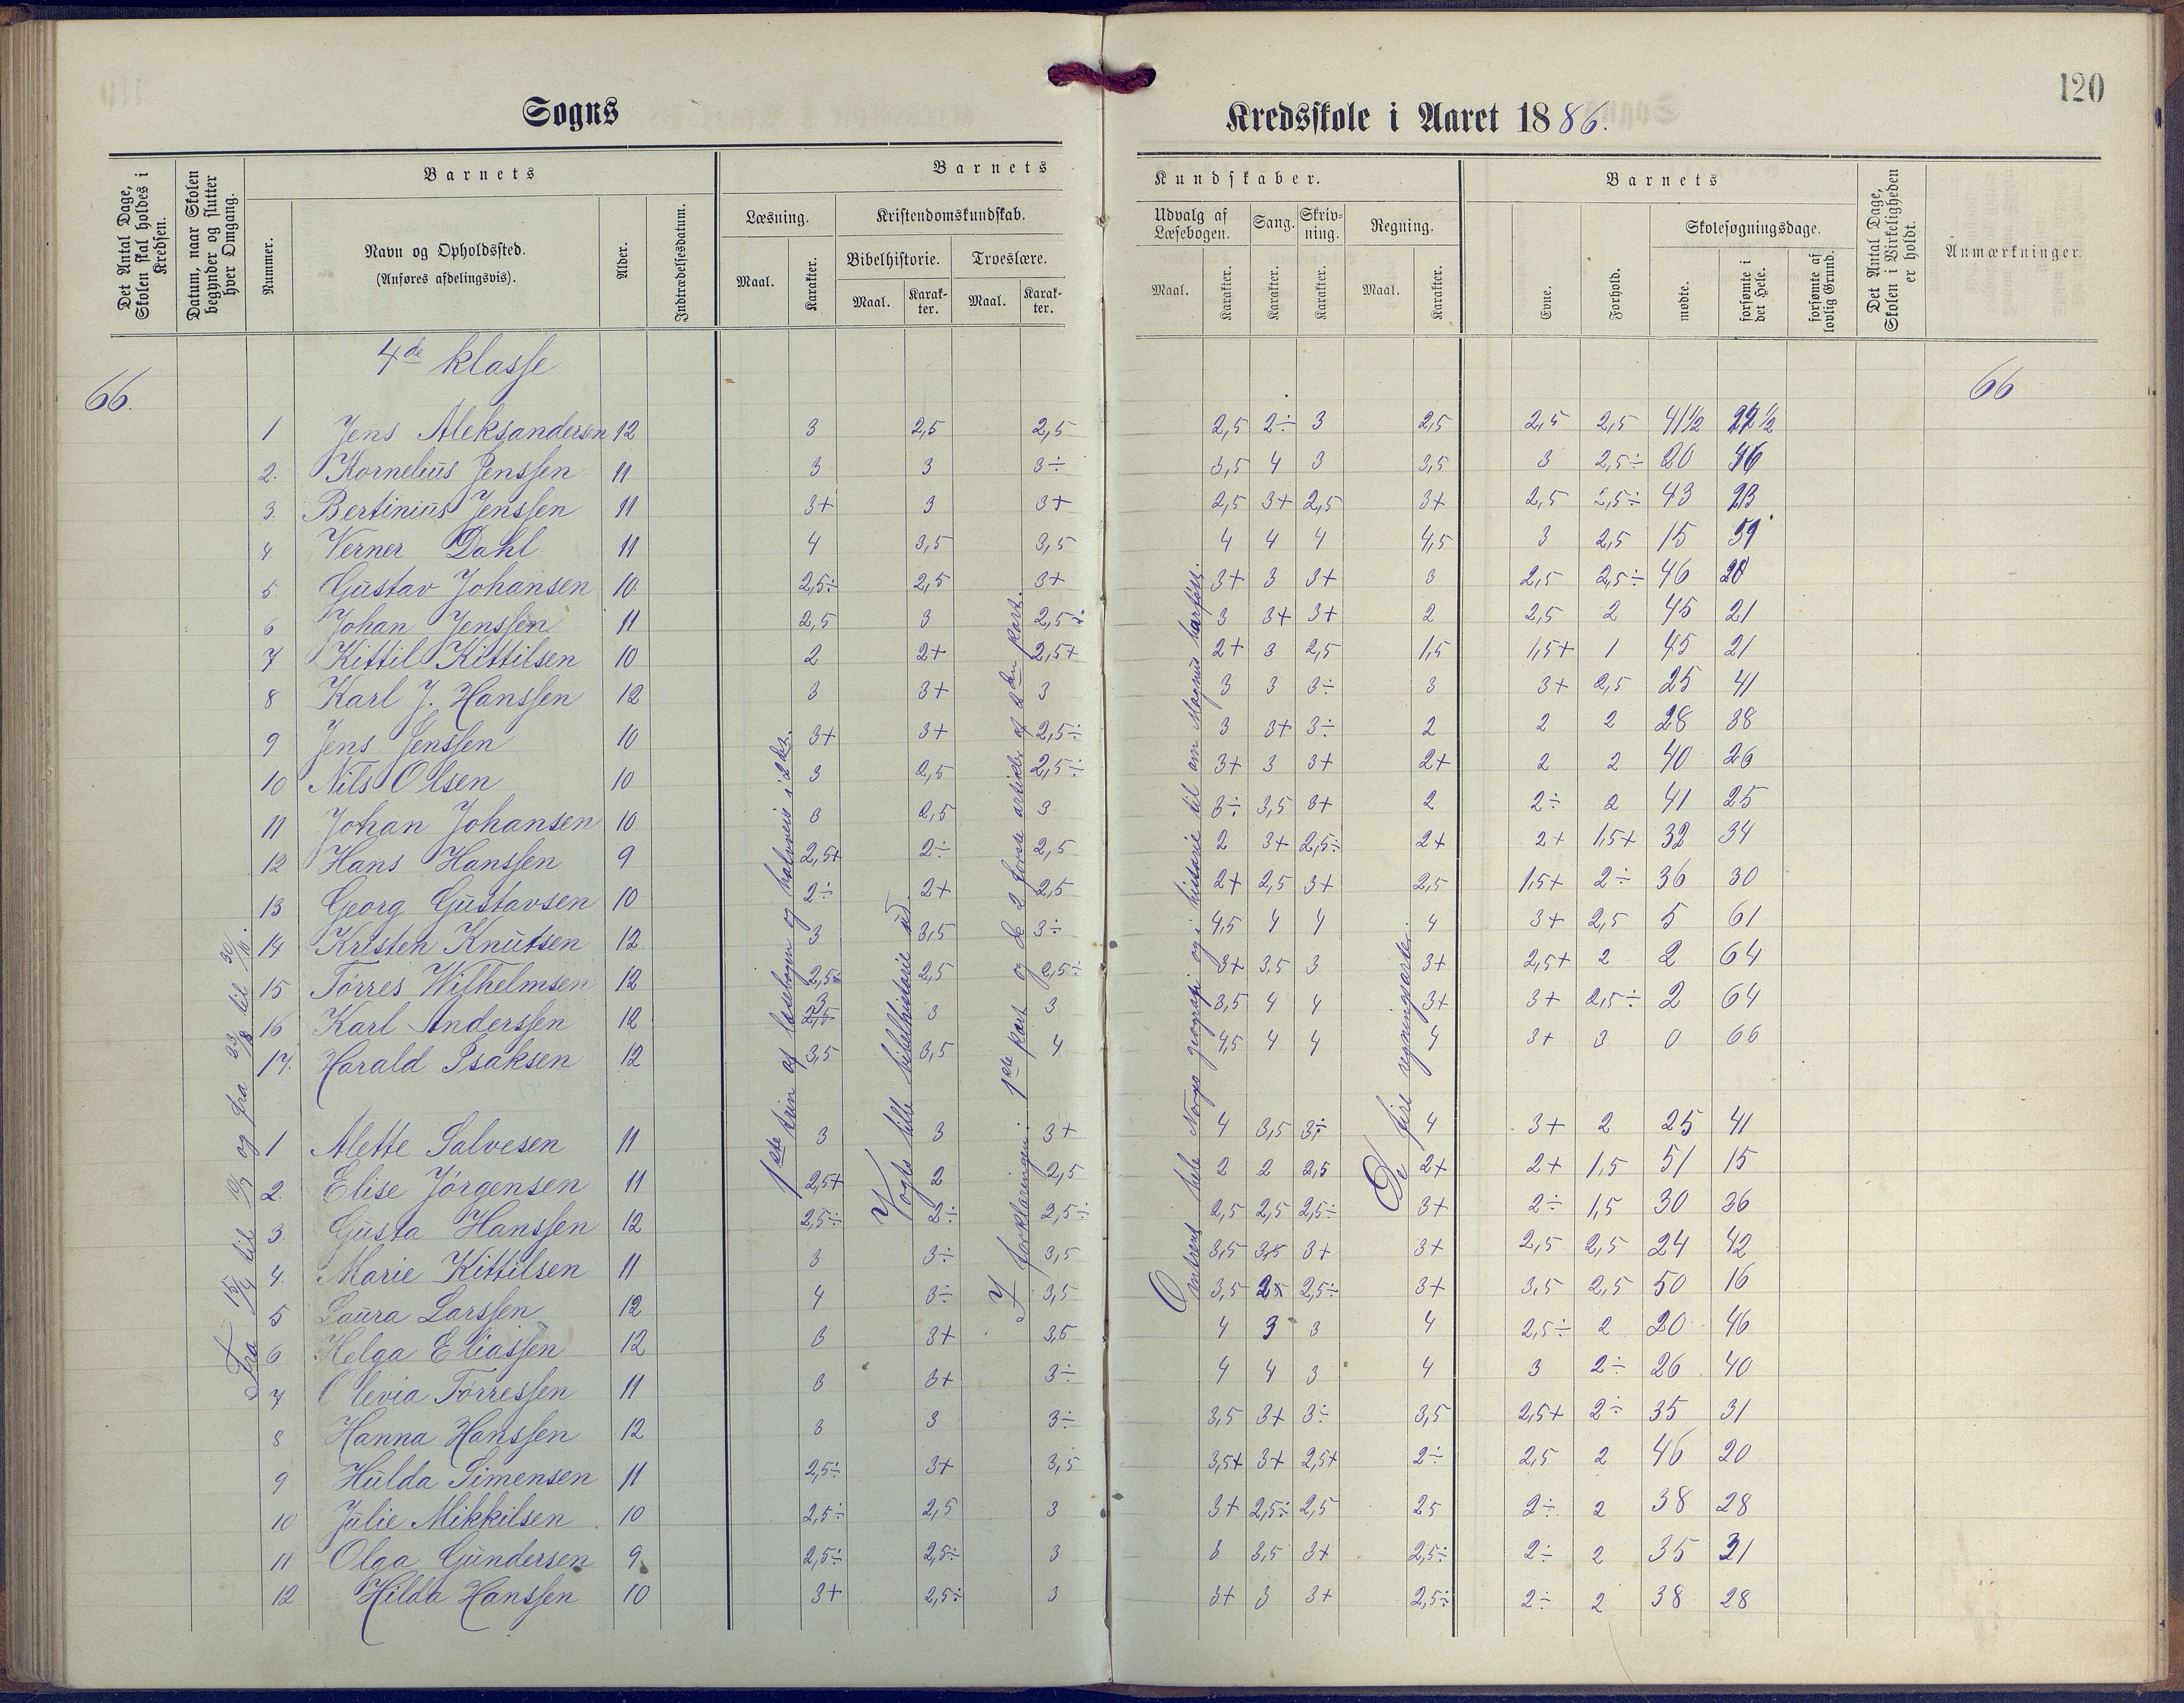 120
Sogns Kredsskole i Aaret 1886.
Det Antal Dage, Skolen skal holdes i Kredsen.
Datum, naar Skolen begynder og slutter hver Omgang.
Barnets
Nummer.
Navn og Opholdssted.
(Anføres afdelingsvis).
Alder.
Indtrædelsesdatum.
Barnets Kundskaber.
Læsning.
Maal. Karakter.
Kristendomskundskab.
Bibelhistorie. Troeslære.
Maal. Karakter. Maal. Karakter.
Udvalg af Læsebogen. Sang. Skrivning. Regning.
Maal. Karakter. Karakter. Karakter. Maal. Karakter.
Barnets
Evne. Forhold.
Skolesøgningsdage.
mødte. forsømte i det Hele. forsømte af lovlig Grund.
Det Antal Dage, Skolen i Virkeligheden er holdt.
Anmærkninger.
4de klasse
66. 66
1 Jens Aleksandersen 12 3 2,5 2,5 2,5 2÷ 3 2,5 2,5 2,5 41½
2. Kornelius Jenssen 11 3 3 3÷ 3,5 4 3 3,5 3 2,5÷ 20 46
3. Bertinius Jenssen 11 3+ 3 3+ 2,5 3+ 2,5 3+ 2,5 2,5÷ 43 23
4 Verner Dahl 11 4 3,5 3,5 4 4 4 4,5 3 2,5 15 51
5 Gustav Johansen 10 2,5÷ 2,5 3+ 3+ 3 3+ 3 2,5 2,5÷ 46 20
6 Johan Jenssen 11 2,5 3 2,5÷ 3 3+ 3+ 2 2,5 2 45 21
7 Kittil Kittilsen 10 2 2+ 2,5+ 2+ 3 2,5 1,5 1,5+ 1 45 21
8 Karl J. Hanssen 12 3 3+ 3 3 3 3÷ 3 3+ 2,5 25 41
9 Jens Jenssen 10 3+ 3+ 2,5÷ 3 3+ 3÷ 2 2 2 28 38
10 Nils Olsen 10 3 2,5 2,5÷ 3+ 3 3+ 2+ 2 2 40 26
11 Johan Johansen 10 3 2,5 3 3÷ 3,5 3+ 2 2÷ 2 41 25
12 Hans Hanssen 9 2,5+ 2÷ 2,5 2 3+ 2,5÷ 2+ 2+ 1,5+ 32 34
13 Georg Gustavsen 10 2÷ 2+ 2,5 2+ 2,5 3+ 2,5 1,5+ 2÷ 36 30
14 Kristen Knutsen 12 3 3,5 3÷ 4,5 4 4 4 3+ 2,5 5 61
15 Tørres Wilhelmsen 12 2,5+ 2,5 2,5÷ 3+ 3,5 3 3+ 2,5+ 2 2 64
16 Karl Anderssen 12 3 3 3 3,5 4 4 3+ 3+ 2,5÷ 2 64
17. Harald Isaksen 12 3,5 3,5 4 4,5 4 4 4 3+ 3 0 66
1 Alette Salvesen 11 3 3 3+ 4 3,5 3÷ 4 3+ 2 25 41
2. Elise Jørgensen 11 2,5+ 2 2,5 2 2 2,5 2+ 2+ 1,5 51 15
3. Gusta Hanssen 12 2,5÷ 2÷ 2,5÷ 2,5 2,5 2,5÷ 3+ 2÷ 1,5 30 36
4. Marie Kittilsen 11 3 3÷ 3,5 3,5 3,5 3+ 3+ 2,5 2,5 24 42
5 Laura Larssen 12 4 3÷ 3,5 3,5 2,5÷ 3+ 3,5 2,5 50 16
6 Helga Eliassen 12 3 3+ 3,5 4 3 3 4 2,5÷ 2 20 46
7 Olevia Tørressen 11 3 3+ 3÷ 4 4 3 4 3 2÷ 26 40
8 Hanna Hanssen 12 3 3 3÷ 3,5 3+ 3÷ 3,5 2,5+ 2÷ 35 31
9 Hulda Simensen 11 2,5÷ 3+ 3,5 3,5+ 3+ 2,5+ 2÷ 2,5 2 46 20
10 Julie Mikkilsen 10 2,5÷ 2,5 3 3+ 2,5÷ 2,5 25 2÷ 2 38 28
11 Olga Gundersen 9 2,5÷ 2,5÷ 3 3 3,5 3+ 2,5÷ 2÷ 2 35 31
12 Hilda Hanssen 10 3+ 2,5÷ 3 3+ 3 3+ 2,5÷ 2÷ 2 38 28
Fra 15/4 til 10/7 og fra 23/8 til 30/10.
1ste trin af læsebogen og halvveis i 2det.
Vogts lille bibelhistorie ud.
I forklaringen: 1ste part og de 2 første artikler af 2den part.
Omtrent hele Norges geografi og i historie til om Magnus barfott.
De fire regningsarter.